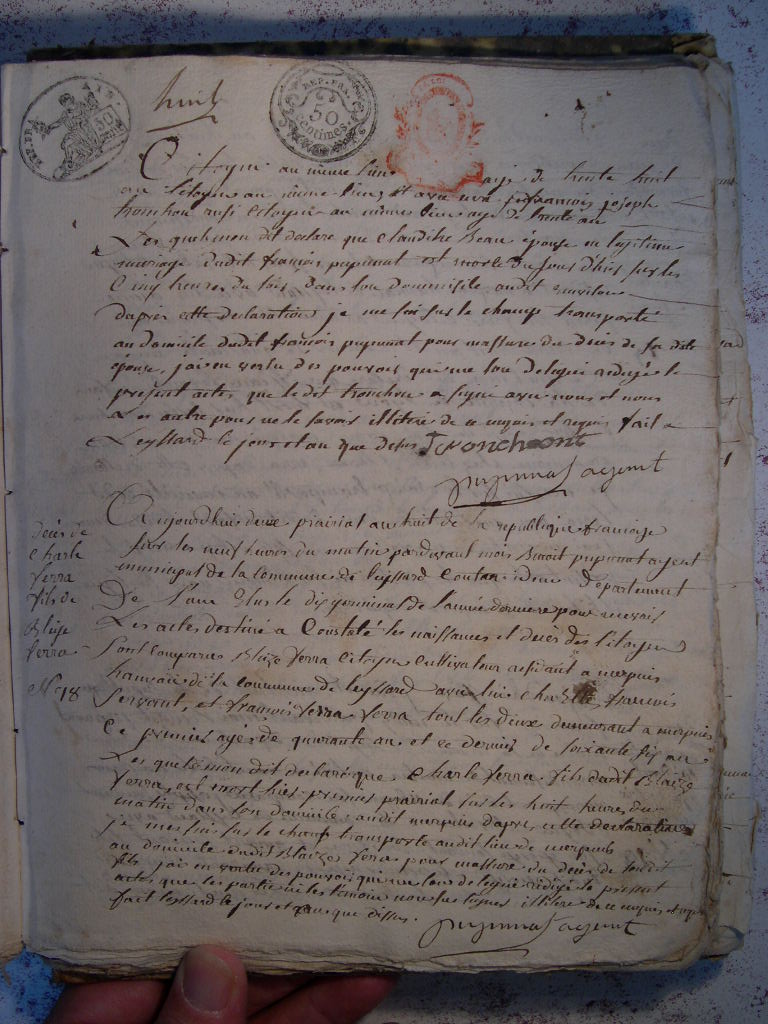 huit
REP. FRA.
50
centimes
Citoyen au même lieu age de trente huit
an Citoyen au même lieu et avec nous françois joseph
tronchon aussi Citoyen au même lieu age de trente an
Les quels mon dit declare que Claudine Beau épouse en legitime
mariage dudit françois pupunat est morte du jour d'hier sur les
Cinq heures du soir dans son domicile audit
dapres cette declaration je me sui sur le champ transporté
au domicile dudit françois pupunat pour massure du décès de sa dite
épouse, jai en vertu des pouvoirs qui me son delegué redigé le
present actes que ledit tronchon a signé avec nous et nous
Les autre pour ne le savoir illitere de ce enquis et requis fait a
Leyssard le jour et an que dessus Tronchont
pupunat agent
décès de
Charle
ferra
fils de
Blaise
ferra
N° 18
Aujourdhui deux prairial an huit de la republique françoise
sur les neuf heures du matin pardevant mois Benoit pupunat agent
municipal de la commune de leyssard Canton idem Departement
De l'ain Elus le dix germinal de l'année derniere pour recevoir
Les actes destiné a Constaté les naissances et décès des Citoyen
sont comparus Blaize ferra Citoyen Cultivateur residant a merpuis
françois de la commune de leyssard avec lui françois
servant, et françois ferra ferra tout les deux demeurant a merpuis
Ce premier age de quarante an et ce dernier de soixante six an
Les quels mon dit declaré que Charle ferra fils dudit Blaize
ferra est mort hier premier prairial sur les huit heures du
matin dans son domicile audit merpuis dapres cette declaration
je mes sui sur le champ transporté audit lieu de merpuis
au domicile dudit Blaize ferra pour massure du décès de sondit
fils jai en vertu des pouvoir qui me sons delegué redigé le present
actes que les partie ni les témoin nons sus signes illitere de ce enquis et requis
fait leyssard le jour et an que dessus. pupunat agent